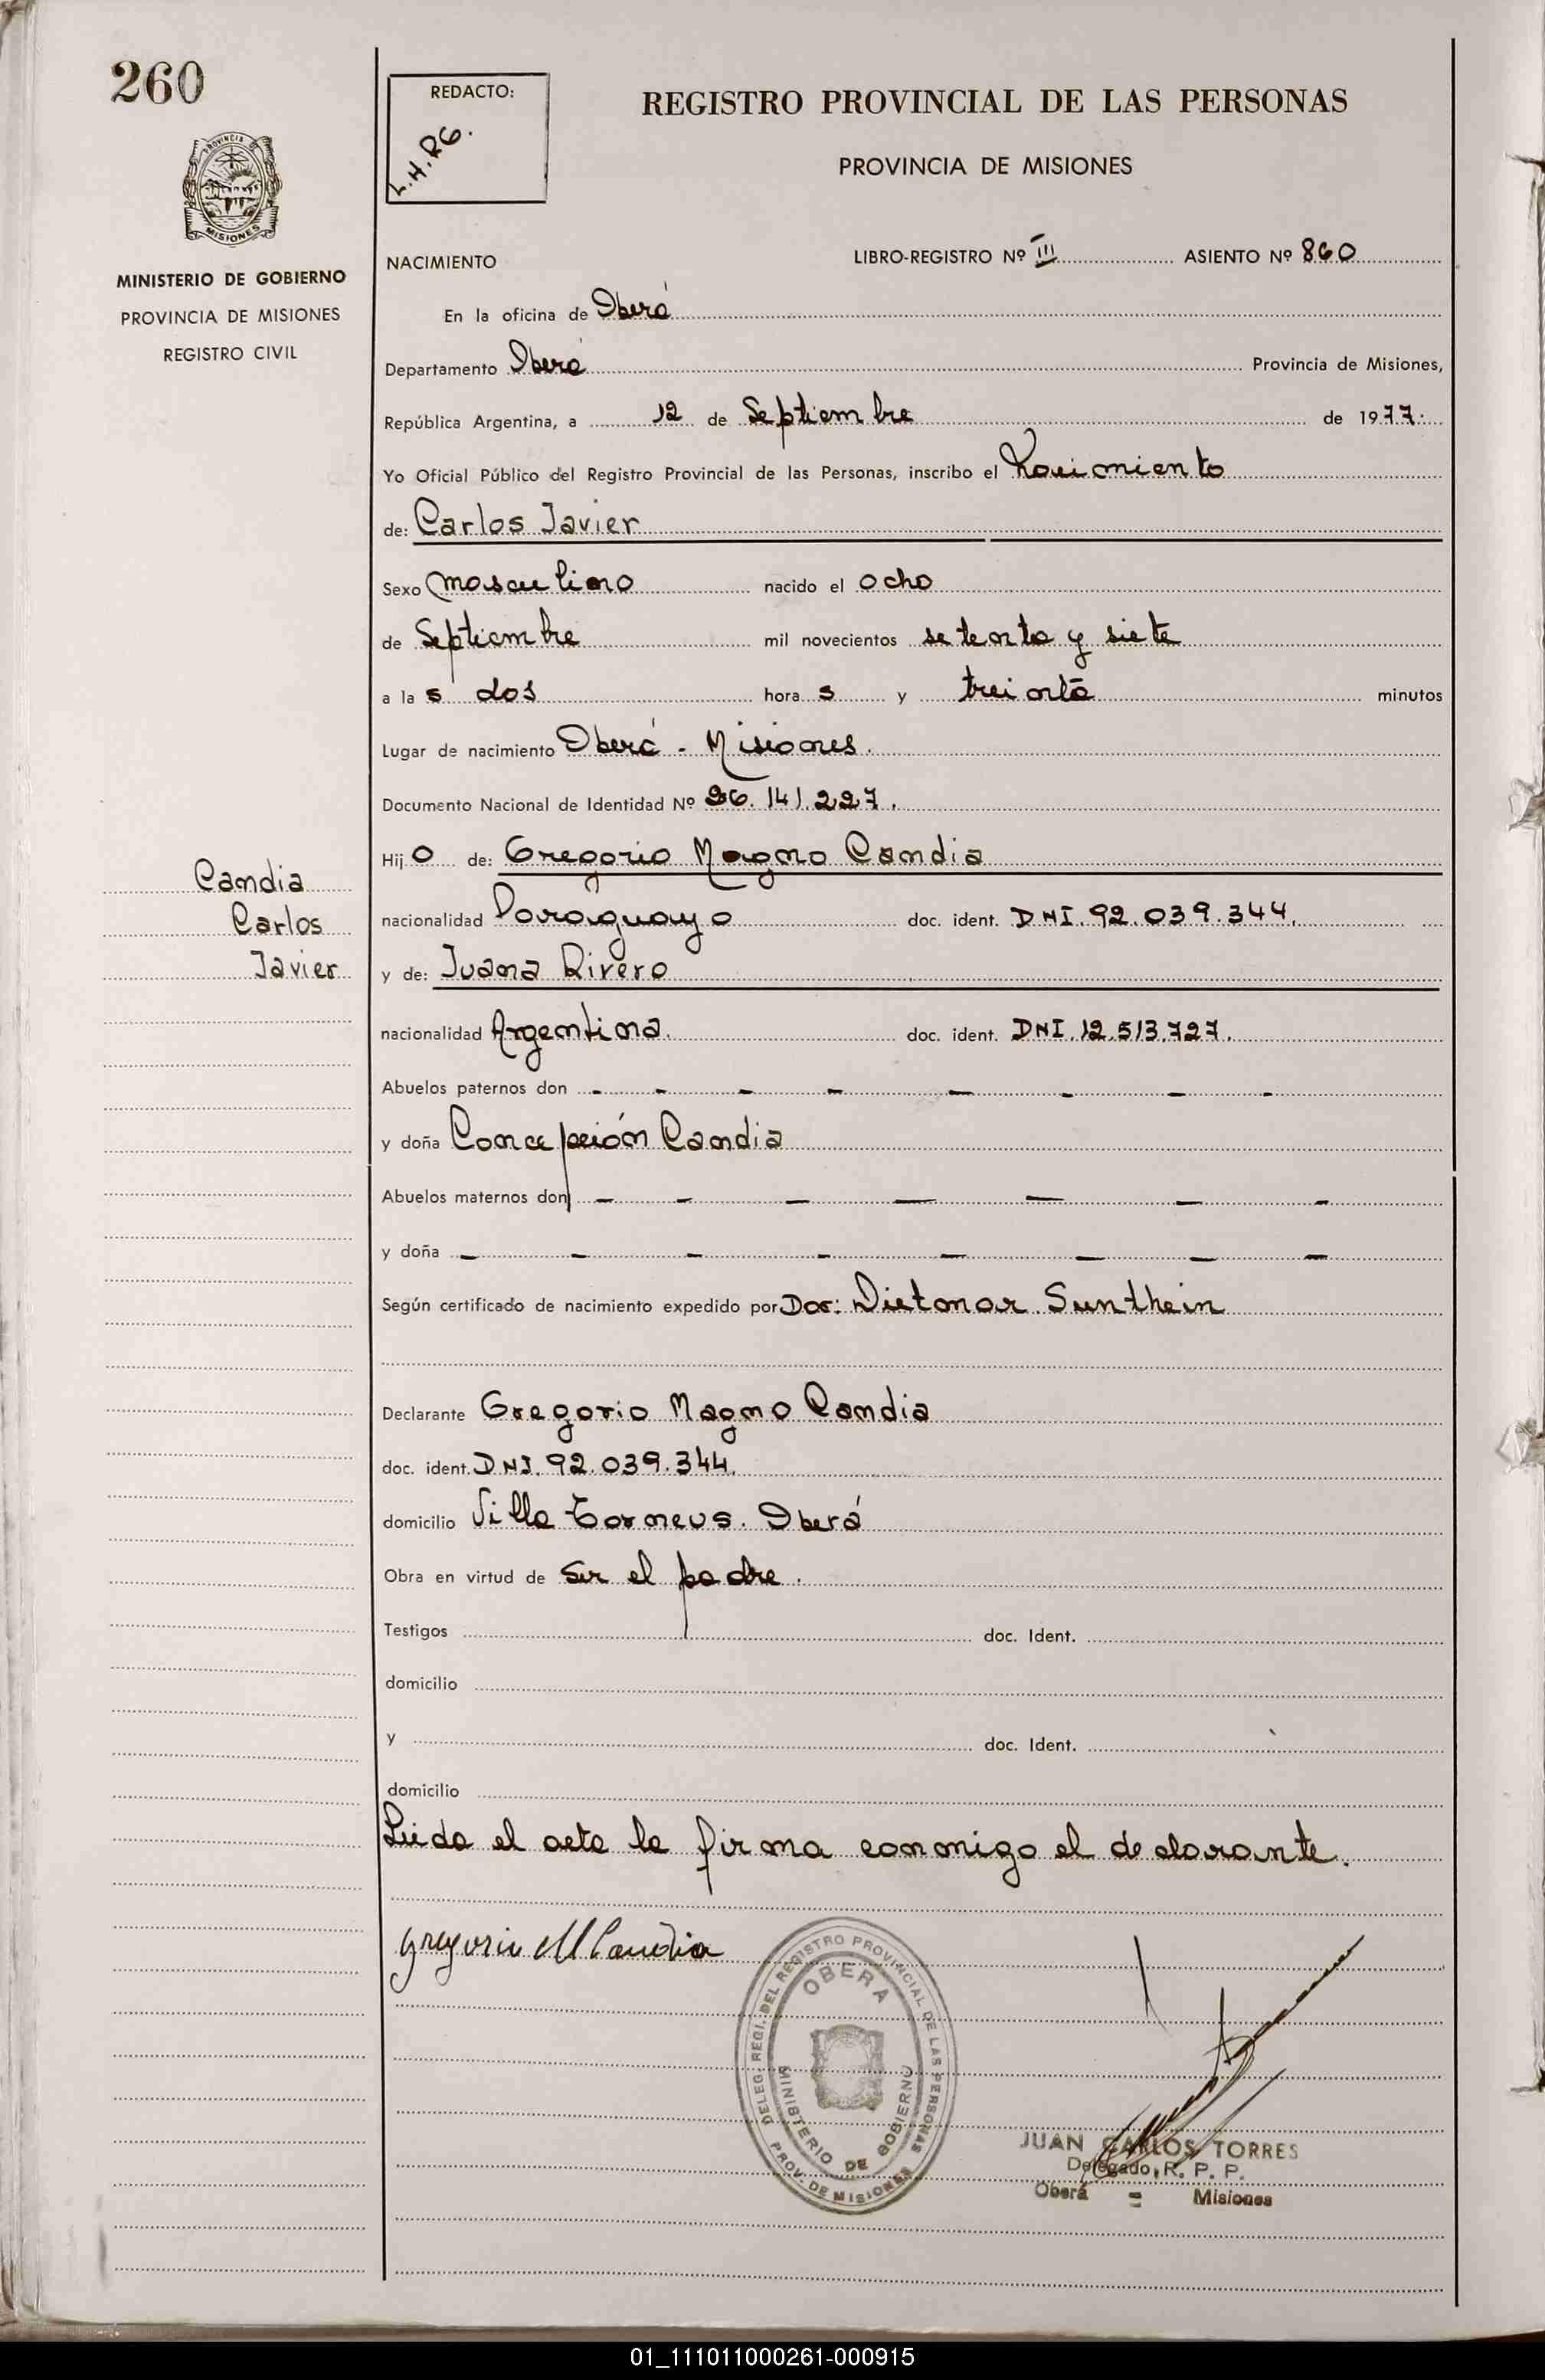 260
REDACTO:
L.H.RG.
REGISTRO PROVINCIAL DE LAS PERSONAS
PROVINCIA DE MISIONES
PROVINCIA DE
MISIONES
MINISTERIO DE GOBIERNO
PROVINCIA DE MISIONES
REGISTRO CIVIL
NACIMIENTO
LIBRO-REGISTRO Nº III ASIENTO Nº 860
En la oficina de Oberá
Departamento Oberá Provincia de Misiones,
República Argentina, a 12 de Septiembre de 1977.
Yo Oficial Público del Registro Provincial de las Personas, inscribo el Nacimiento
de: Carlos Javier
Sexo masculino nacido el ocho
de Septiembre mil novecientos setenta y siete
a la s dos hora s y treinta minutos
Lugar de nacimiento Oberá - Misiones.
Documento Nacional de Identidad Nº 26.141.227.
Hij o de: Gregorio Magno Candia
nacionalidad Paraguayo doc. ident. DNI. 92.039.344.
y de: Juana Rivero
nacionalidad Argentina. doc. ident. DNI. 12.513.727.
Candia
Carlos
Javier
Abuelos paternos don - - - - - - - -
y doña Concepción Candia
Abuelos maternos don - - - - - - -
y doña - - - - - - - -
Según certificado de nacimiento expedido por Doc: Dietmar Sunthein
Declarante Gregorio Magno Candia
doc. ident. DNI. 92.039.344.
domicilio Villa Tormeus. Oberá
Obra en virtud de ser el padre.
Testigos doc. Ident.
domicilio
y doc. Ident.
domicilio
Leida el acta la firma conmigo el declarante.
Gregorio M Candia
DELEG. REGI. DEL REGISTRO PROVINCIAL DE LAS PERSONAS
OBERA
MINISTERIO DE GOBIERNO
PROV. DE MISIONES
JUAN CARLOS TORRES
Delegado, R. P. P.
Oberá = Misiones
01_111011000261-000915